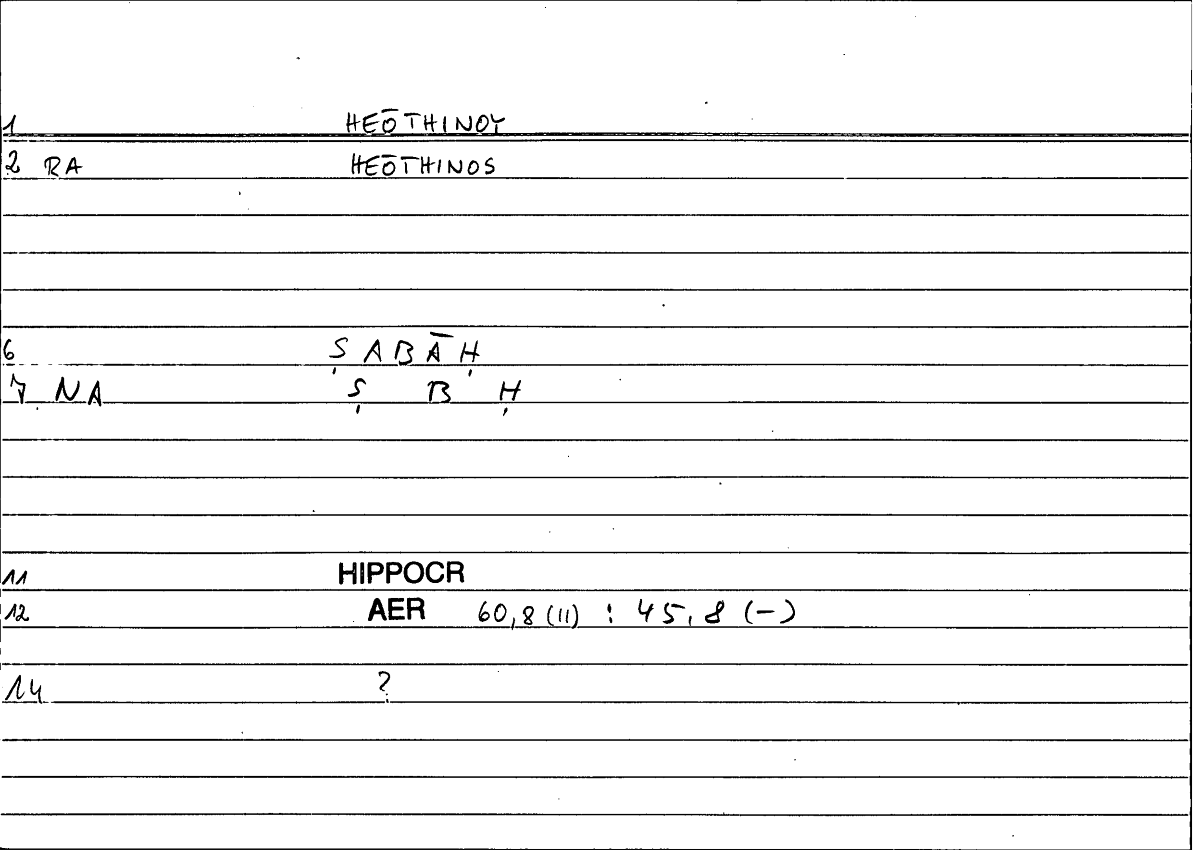 1 HEŌTHINOY
2 RA HEŌTHINOS
6 ṢABĀḤ
7 NA Ṣ B Ḥ
11 HIPPOCR
12 AER 60,8 (11) : 45,8 (-)
14 ?